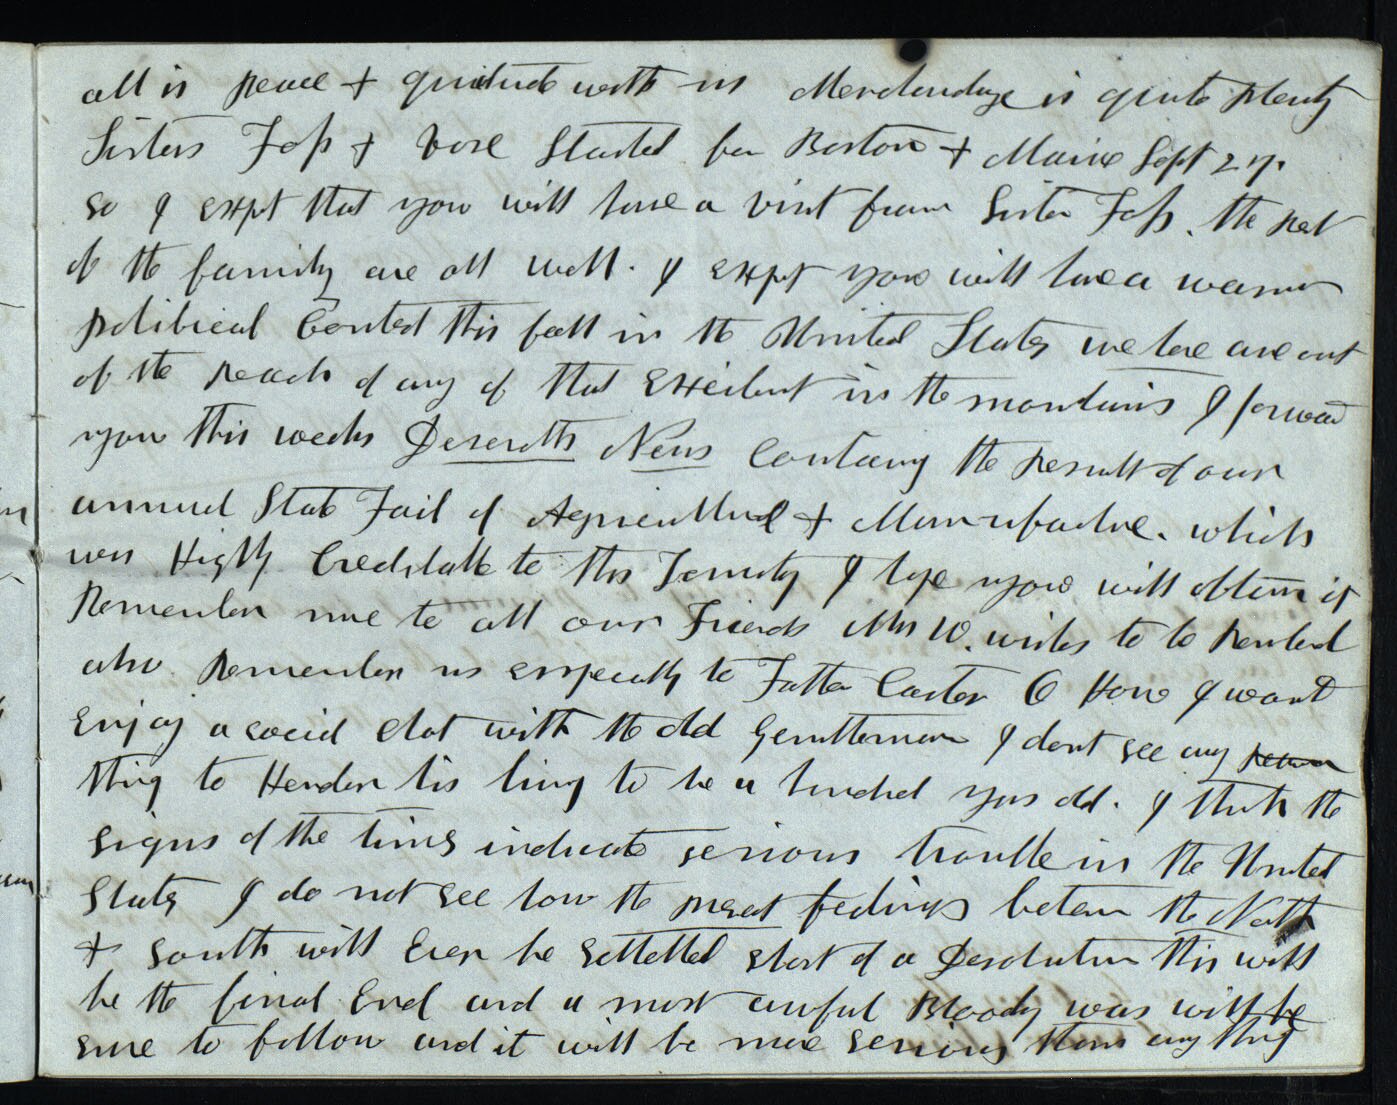 all is peace + quietude with us Merchandize is quite plenty
Sisters Foss + Vose Started for Boston + Maine Sept 27.
so I expt that you will have a visit from Sister Foss. the rest
of the family are all well. I expt you will have a warm
political Contest this fall in the United States we here are out
of the reach of any of that Exceitment in the mountains I forward
you this weeks Deseretts News Containg the result of our
annual State Fair of Agricultural + Mannufacture. which
was Highly Creditable to this Territy I hope you will obtain it
Remember me to all our Friends Mrs W. wishes to be
also. Remember us esspecially to Father Carter O How I want
Enjoy a social Chat with the old Gentleman I dont see any
thing to Hender his living to be a hundred yers old. I think the
signs of the times indicate serious trouble in the United
States I do not see how the present feelings between the North
+ South will Ever be settelled short of a Desolution this will
be the final End and a most awful Bloody war will be
sure to follow and it will be more serious than any thing